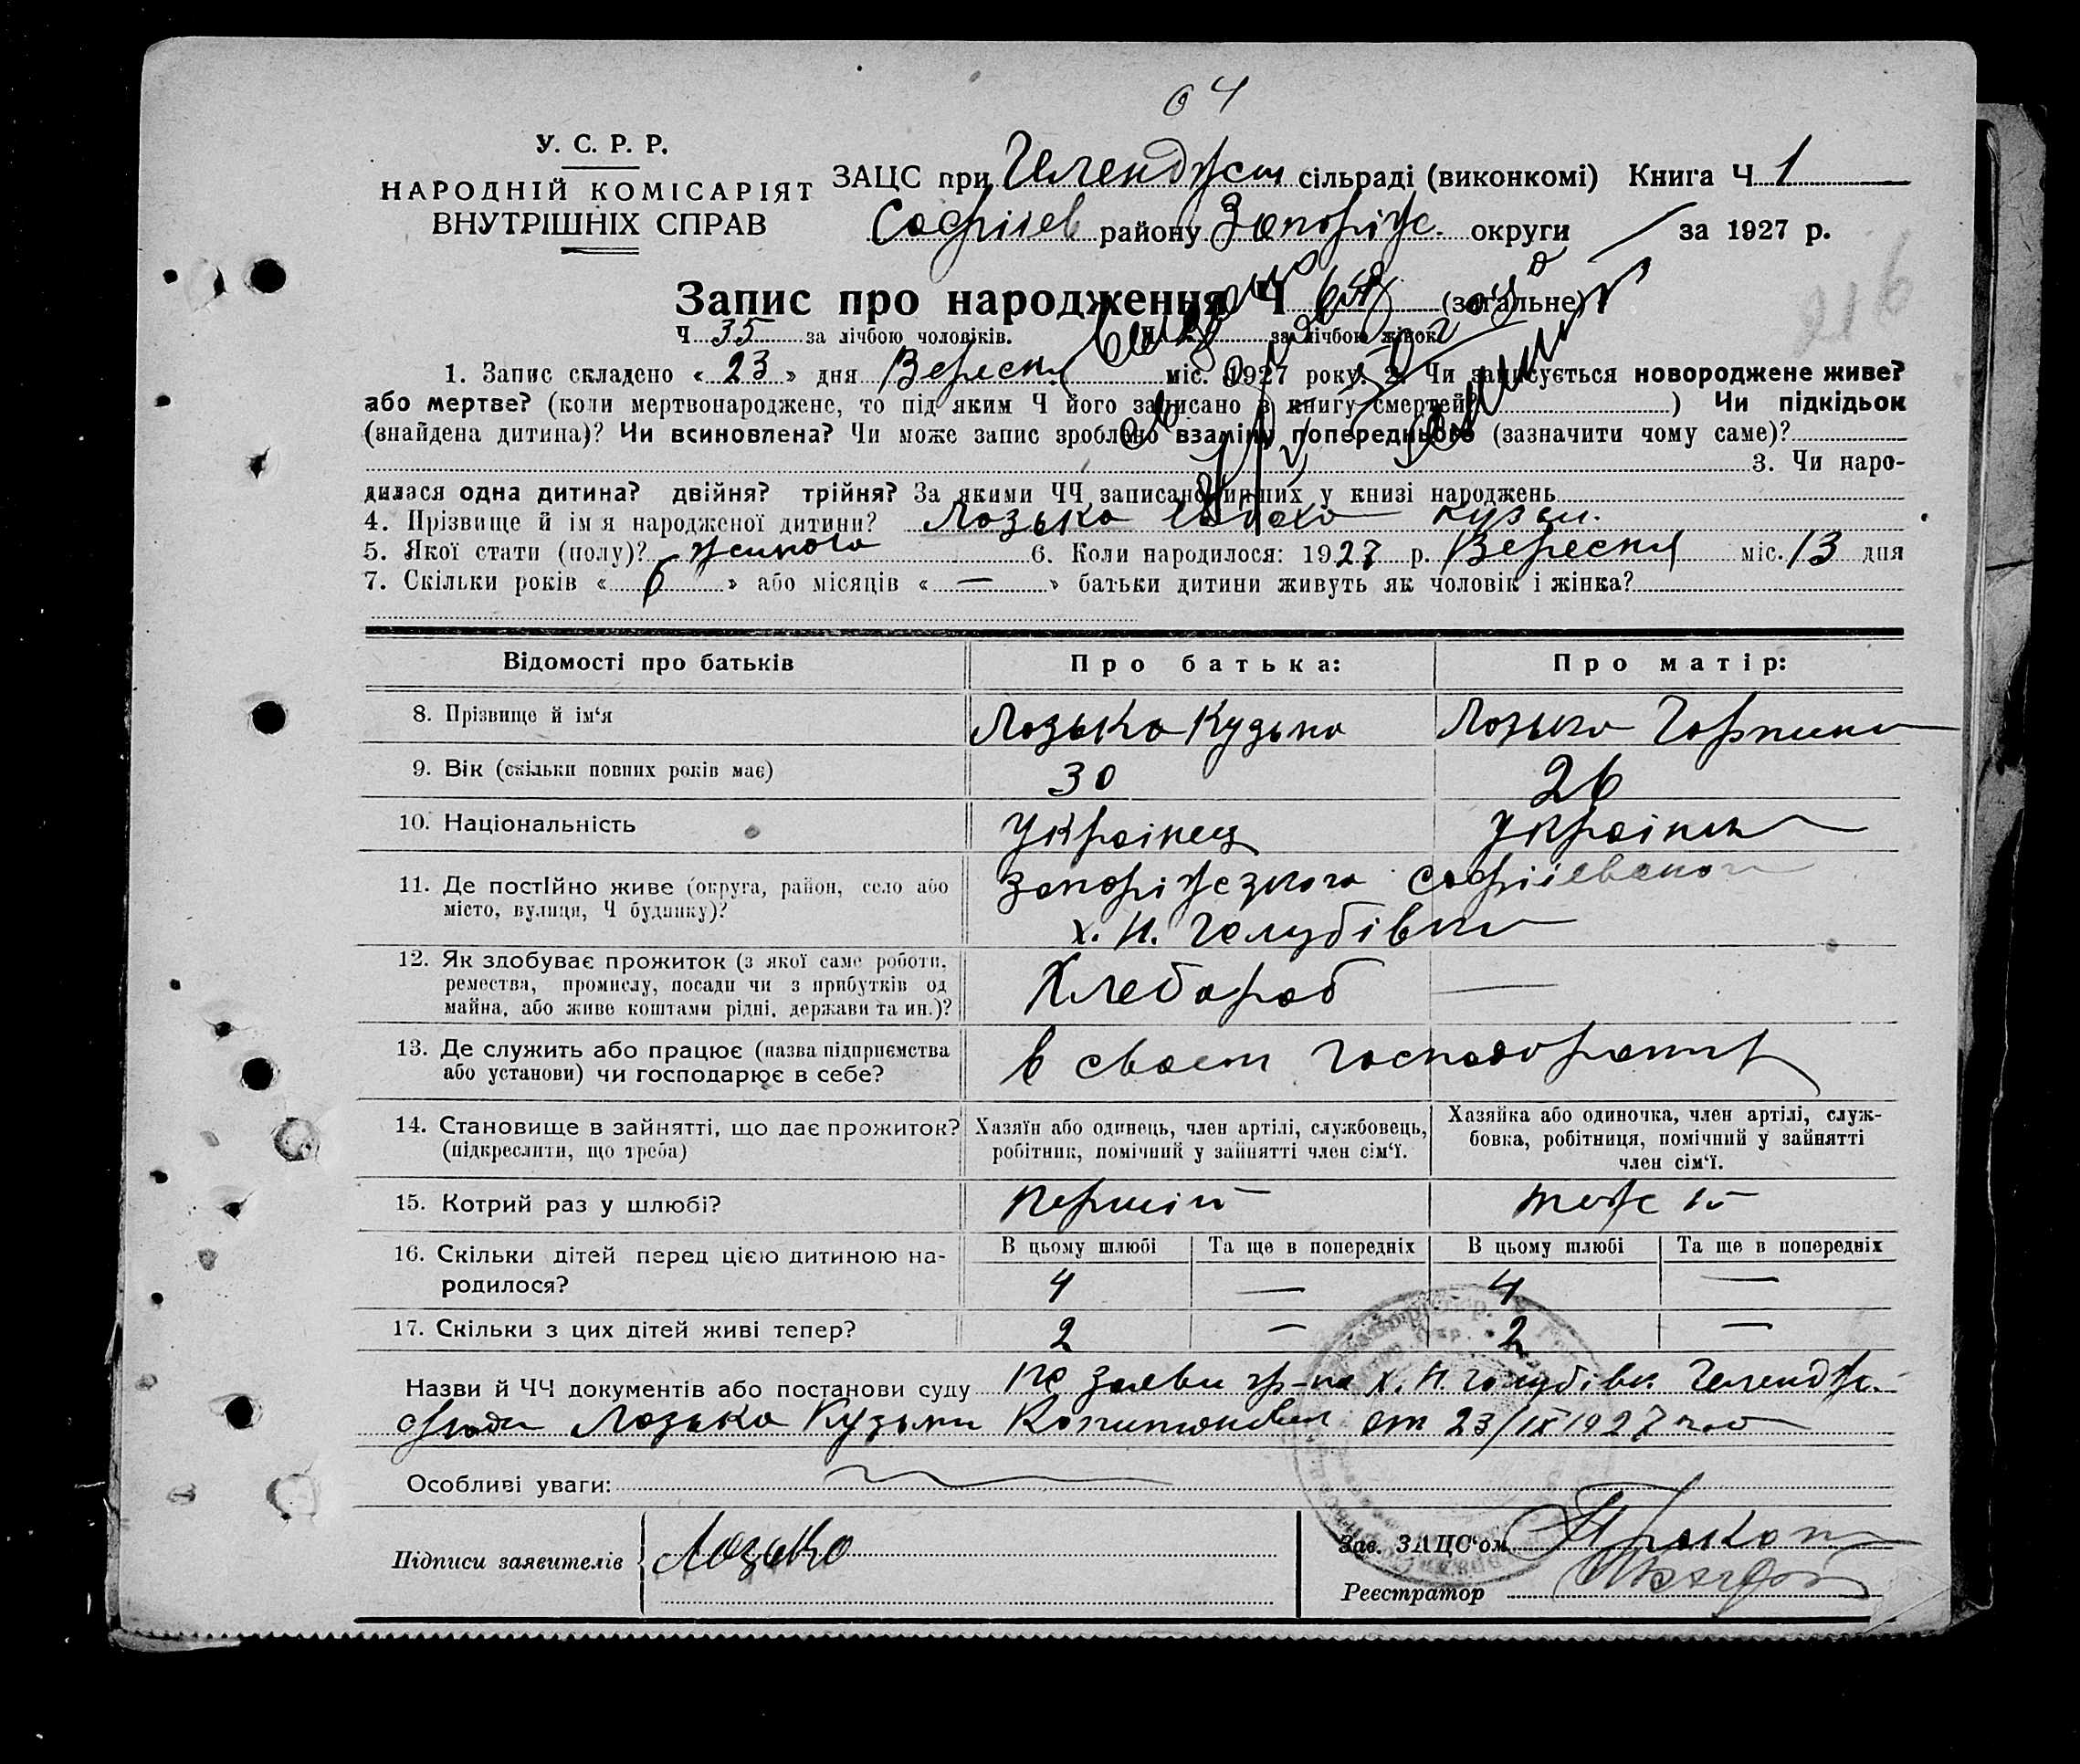 64
У. С. Р. Р.
НАРОДНІЙ КОМІСАРІЯТ
ВНУТРІШНІХ СПРАВ
ЗАЦС при Гелендуст сільраді (виконкомі) Книга Ч 1
Софіїев району Запоріж. округи за 1927 р.
216
Запис про народження Ч (загальне)
Ч 35 за лічбою чоловіків. Ч за лічбою жінок
1. Запис складено « 23 » дня Вересня міс. 1927 року. 2. Чи записується новороджене живе?
або мертве? (коли мертвонароджене, то під яким Ч його записано в книгу смертей? ) Чи підкідьок
(знайдена дитина)? Чи всиновлена? Чи може запис зроблено взамін попереднього (зазначити чому саме)?
3. Чи наро-
дилася одна дитина? двійня? трійня? За якими ЧЧ записано инших у книзі народжень
4. Прізвище й імя народженої дитини? Лозько
5. Якої стати (полу)? жиного 6. Коли народилося: 1927 р. Вересня міс. 13 дня
7. Скільки років « 6 » або місяців « — » батьки дитини живуть як чоловік і жінка?
Відомості про батьків Про батька: Про матір:
8. Прізвище й ім'я Лозько Кузьма Лозько Горпина
9. Вік (скільки повних років має) 30 26
10. Національність Українец Українка
11. Де постійно живе (округа, район, село або місто, вулиця, Ч будинку)? Запоріжзкого Софіїевского
х. Н. Голубівка
12. Як здобуває прожиток (з якої саме роботи, ремества, промислу, посади чи з прибутків од майна, або живе коштами рідні, держави та ин.)? Хлебороб —
13. Де служить або працює (назва підприємства або установи) чи господарює в себе? в своем господарстві
14. Становище в зайнятті, що дає прожиток? (підкреслити, що треба) Хазяїн або одинець, член артілі, службовець, робітник, помічний у зайнятті член сім'ї. Хазяйка або одиночка, член артілі, служ-бовка, робітниця, помічний у зайнятті член сім'ї.
15. Котрий раз у шлюбі? Першій тоже
16. Скільки дітей перед цією дитиною на-родилося? В цьому шлюбі Та ще в попередніх В цьому шлюбі Та ще в попередніх
4 — 4 —
17. Скільки з цих дітей живі тепер? 2 — 2 —
Назви й ЧЧ документів або постанови суду По заяви гр-на х. Н. Голубівки
Лозька Кузьми Капитоновича от 23/IX 1927 года
Особливі уваги:
Підписи заявителів Лозько
Зав. ЗАЦС'ом
Реєстратор